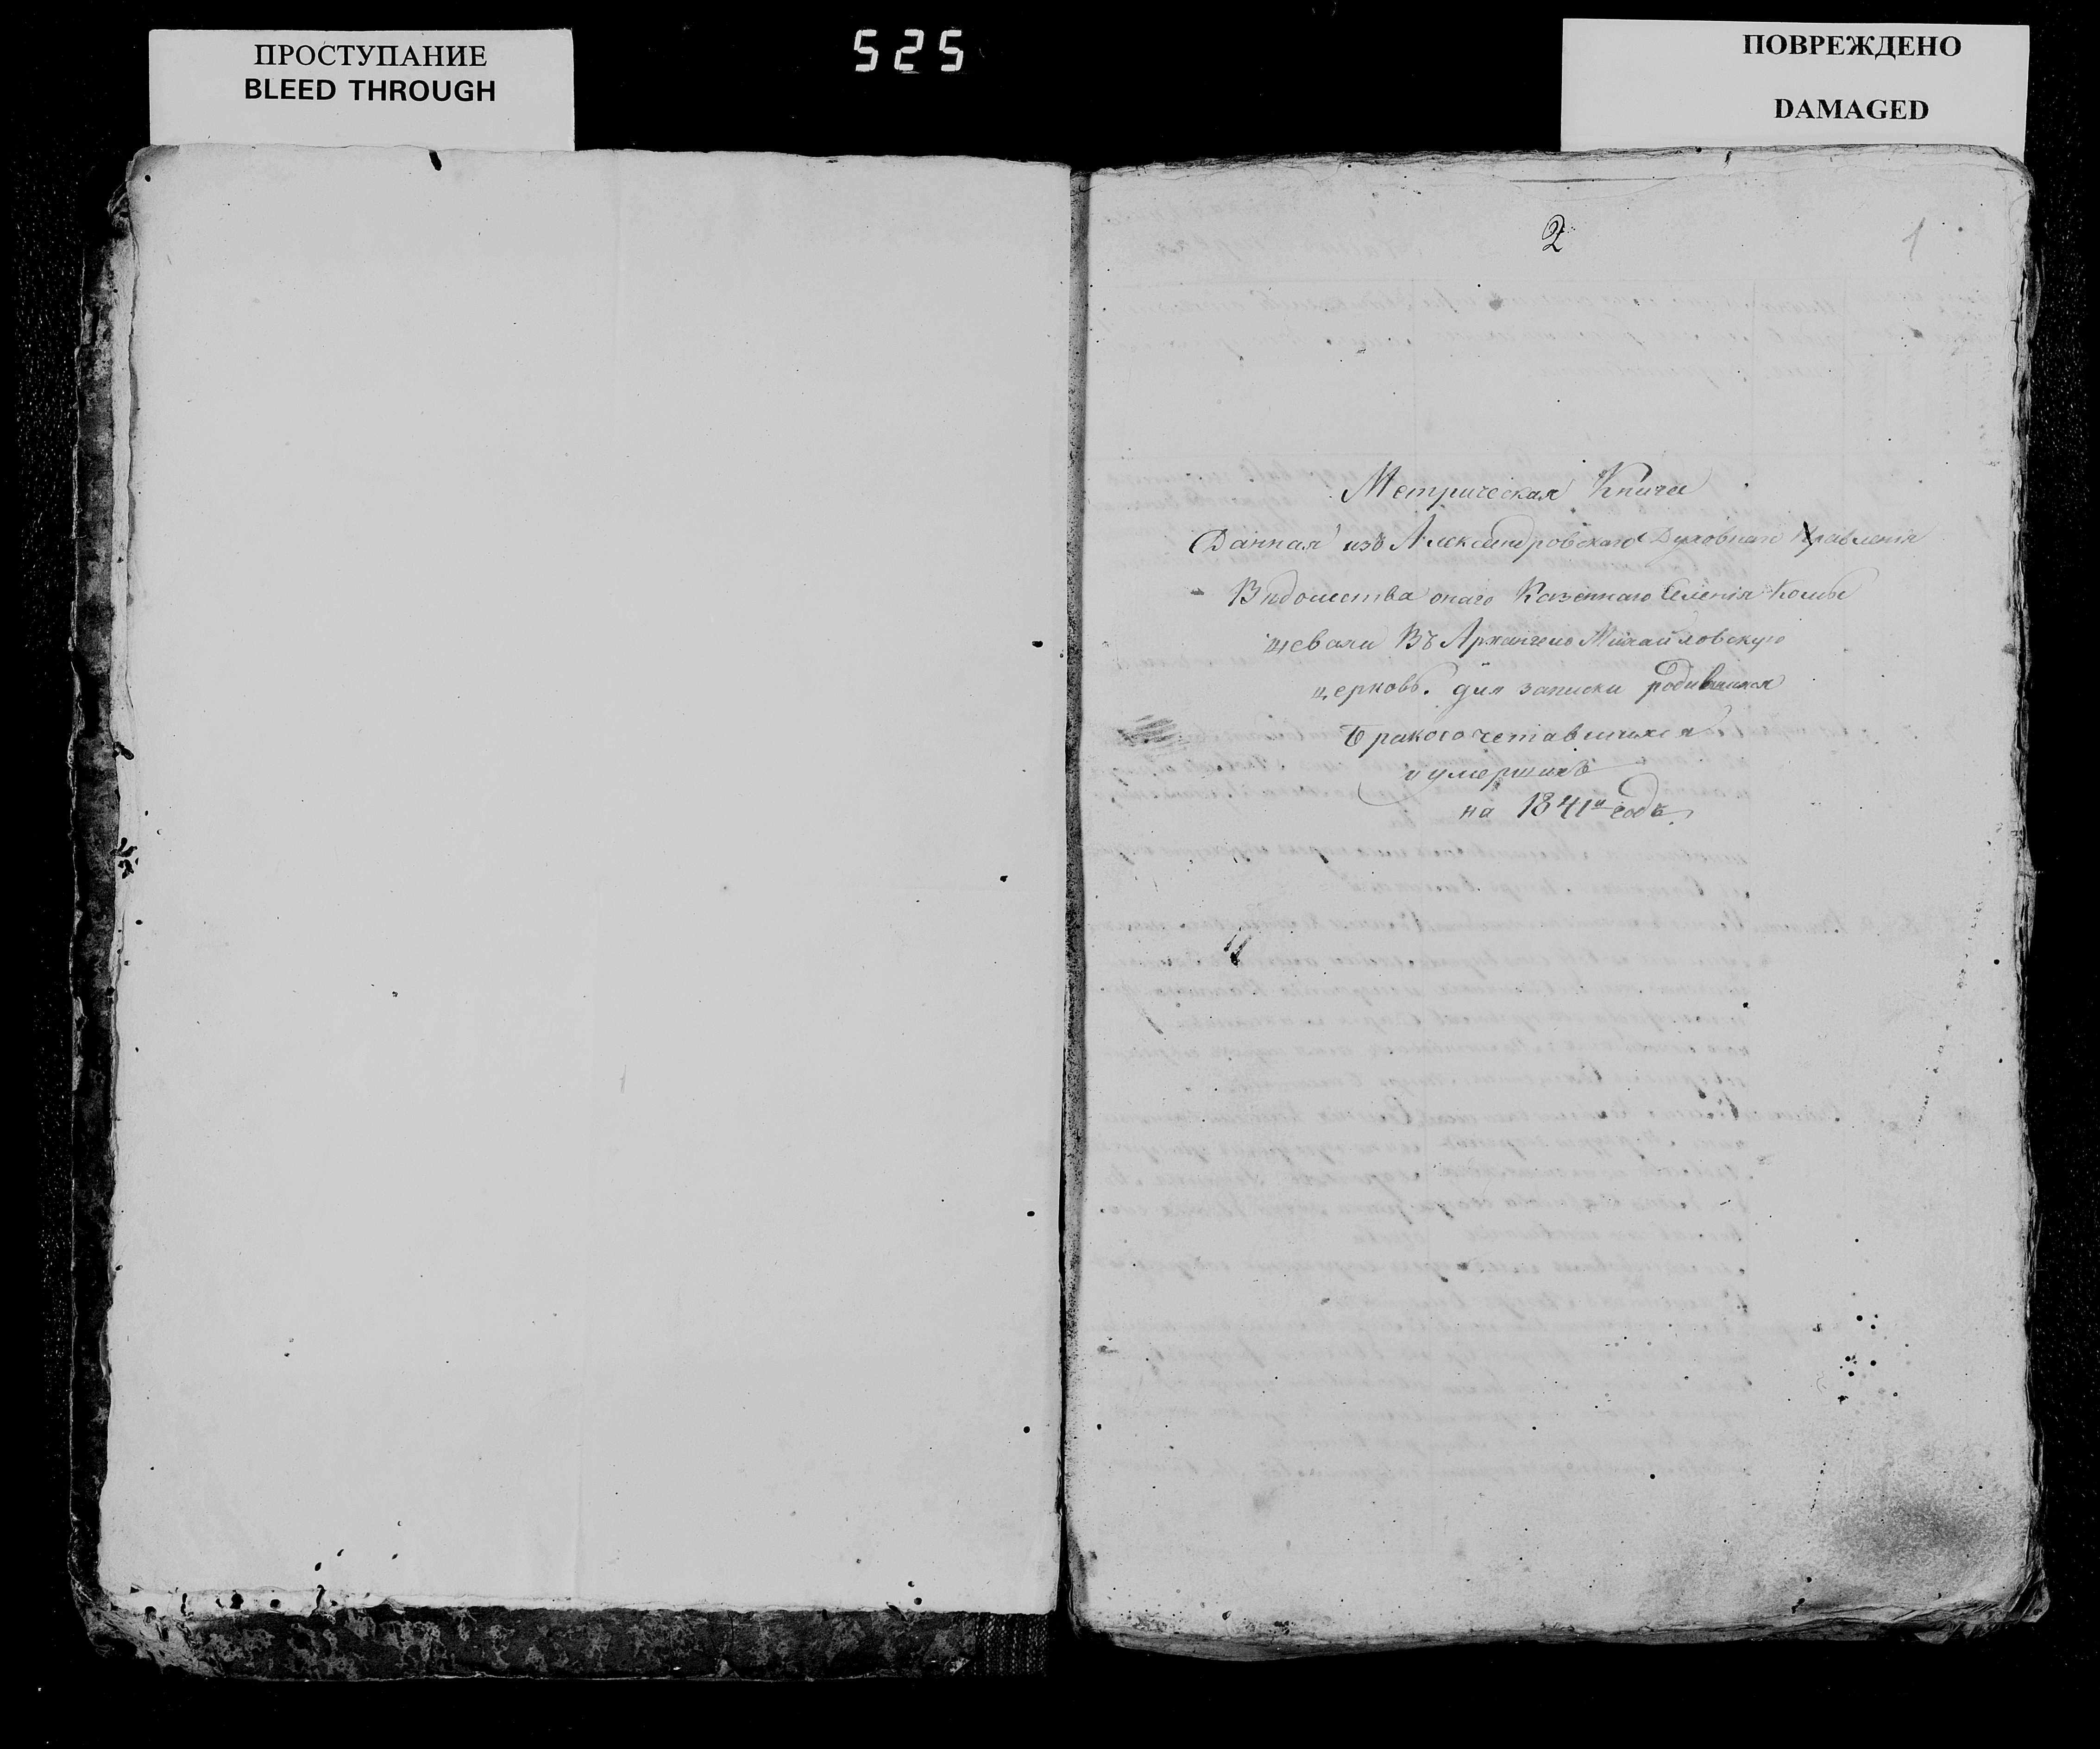 ПРОСТУПАНИЕ
BLEED THROUGH
525
ПОВРЕЖДЕНО
DAMAGED
2
1
Метрическая Книга
Данная изъ Александровскаго Духовнаго Правленія
Вѣдомства онаго Казеннаго Селенія Комы
шевахи Въ Архангело Михайловскую
церковь. для записки родившихся
Бракосочетавшихся
и умершихъ
на 1841й годъ.